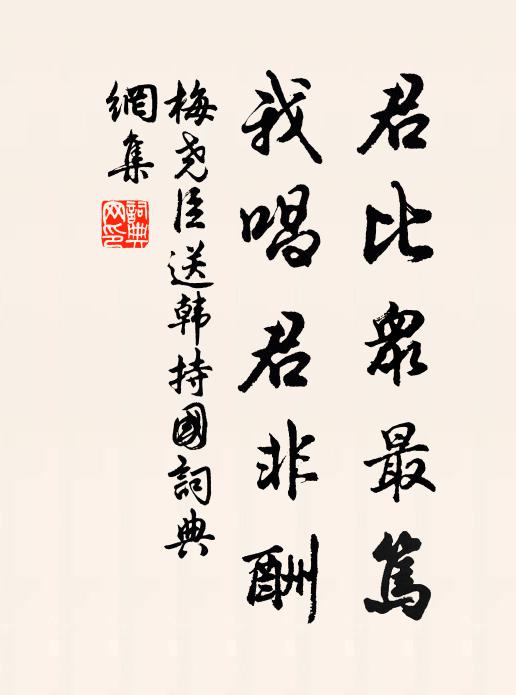 君比衆最篤
我唱君非酬
梅尧臣送韩持國詞典
網集
詞典
网印